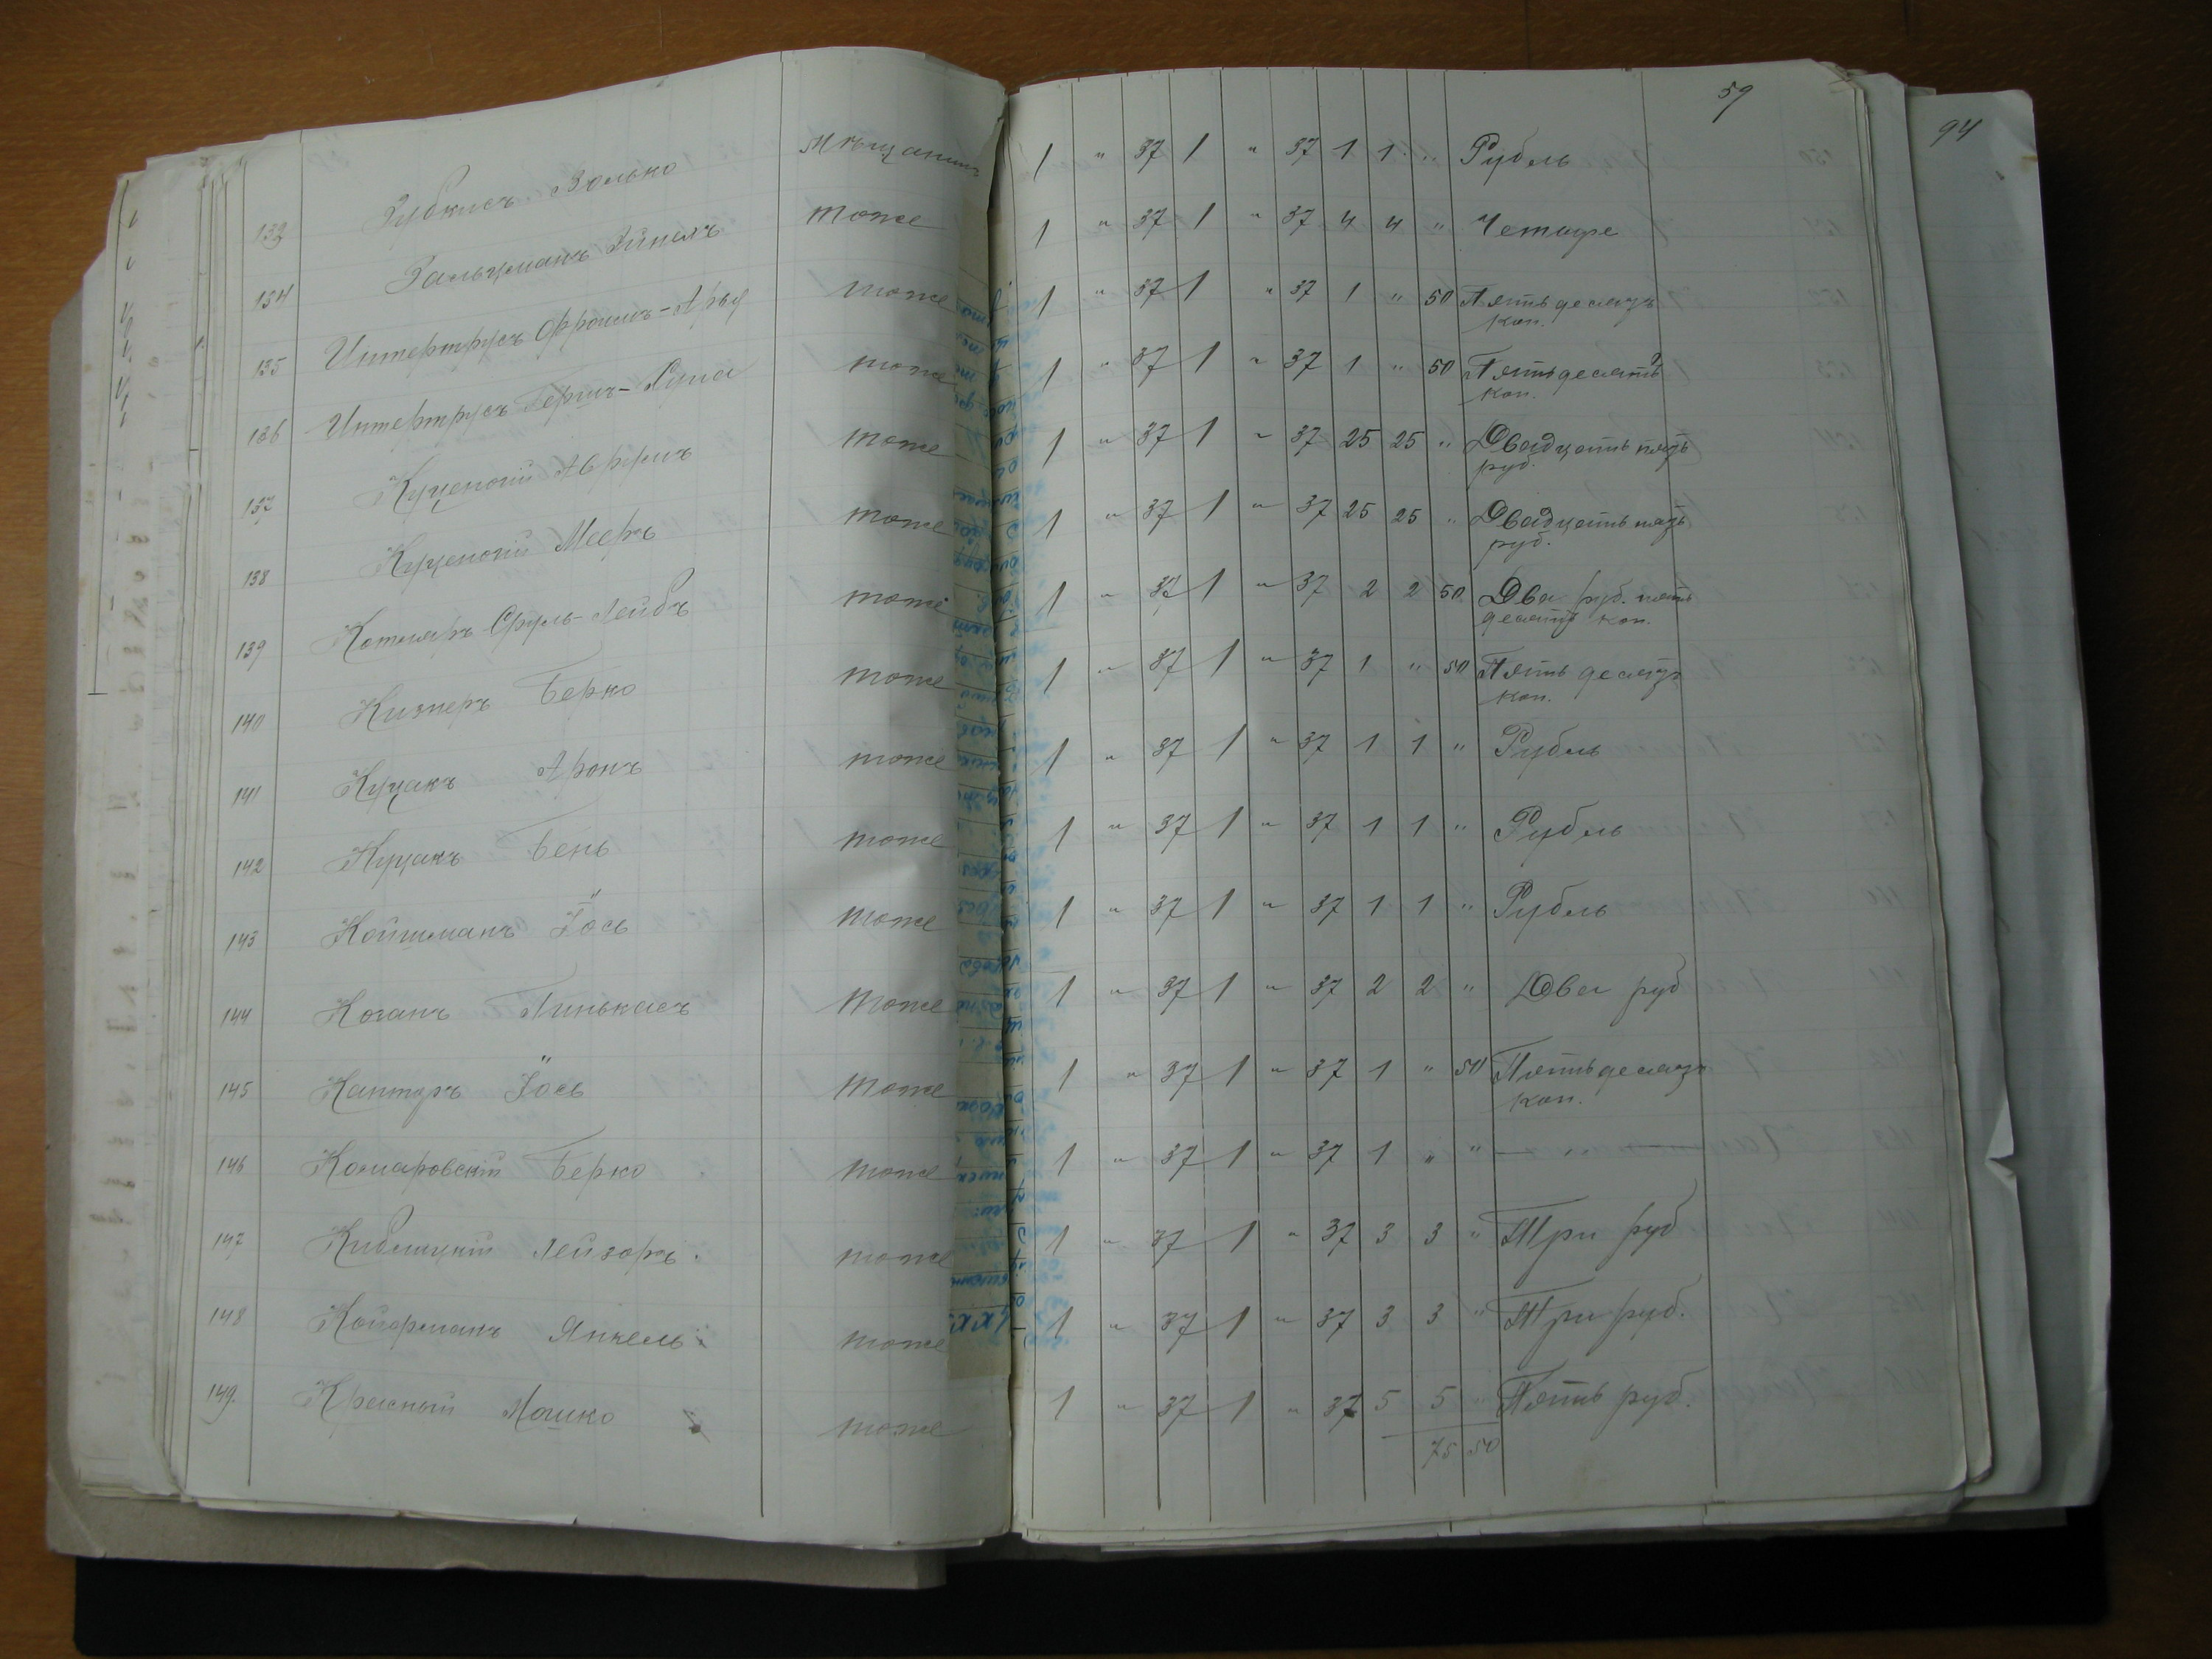 59
94
133 Зубкисъ Волько мѣщанинъ 1 " 37 1 " 37 1 1 " Рубль
134 Зальцманъ тоже 1 " 37 1 " 37 4 4 " Четыре
135 Интертрусъ Фроимъ-Арья тоже 1 " 37 1 " 37 1 " 50 Пятьдесятъ
коп.
136 Интертрусъ Гершъ- тоже 1 " 37 1 " 37 1 " 50 Пятьдесятъ
коп.
137 Куценогій Аврумъ тоже 1 " 37 1 " 37 25 25 " Двадцать пять
руб.
138 Куценогій Мееръ тоже 1 " 37 1 " 37 25 25 " Двадцать пять
руб.
139 Котляръ Сруль-Лейбъ тоже 1 " 37 1 " 37 2 2 50 Два руб. пять
десятъ коп.
140 Кизнеръ Берко тоже 1 " 37 1 " 37 1 " 50 Пять десятъ
коп.
141 Куцакъ Аронъ тоже 1 " 37 1 " 37 1 1 " Рубль
142 Куцакъ Бень тоже 1 " 37 1 " 37 1 1 " Рубль
143 Койшманъ Іось тоже 1 " 37 1 " 37 1 1 " Рубль
144 Коганъ Пинькасъ тоже 1 " 37 1 " 37 2 2 " Два руб
145 Канторъ Іось тоже 1 " 37 1 " 37 1 " 50 Пятьдесятъ
коп.
146 Комаровскій Берко тоже 1 " 37 1 " 37 1 " " —
147 Киблицкій Лейзоръ. тоже 1 " 37 1 " 37 3 3 " Три руб
148 Койфманъ Янкель тоже 1 " 37 1 " 37 3 3 " Три руб.
149. Красный Мошко тоже 1 " 37 1 " 37 5 5 " Пять руб.
75 50